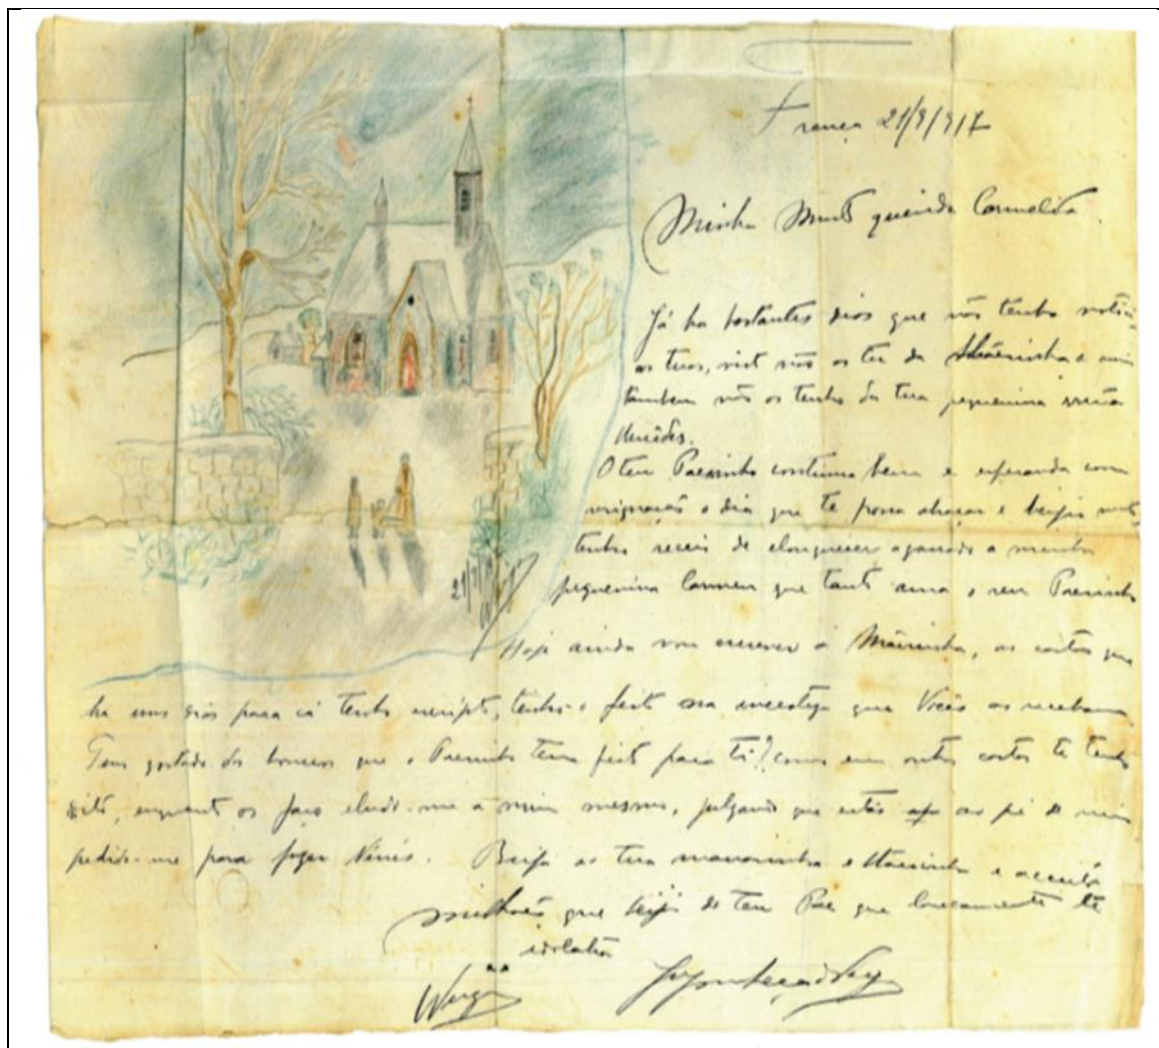 França 21/9/917
Minha Muito querida Carmelita
Já ha bastantes dias que não tenho noticias
as tuas, visto não as ter da Mãesinha e assim
tambem não as tenho da tua pequenina irmã
O teu Paesinho continua bem e esperando com
resignação o dia que te possa abraçar e beijar muito,
tenho receio de elouquecer agarrado a minha
pequenina Carmen que tanto ama o seu Paesinho
21/9/917
Hoje ainda vou escrever á Mãesinha, as cartas que
ha uns dias para cá tenho escripto, tenho-o feito na incerteza que Vocês as recebam.
Tens gostado dos bonecos que o Paesinho tem feito para ti? como em outras cartas te tenho
dito, enquanto os faço eludo-me a mim mesmo, julgando que estás ao pé de mim
pedindo-me para fazer Nénés. Beija as tua manasinha e Mãesinha e acceita
milhões que beijos do teu Pae que loucamente te
idolatra